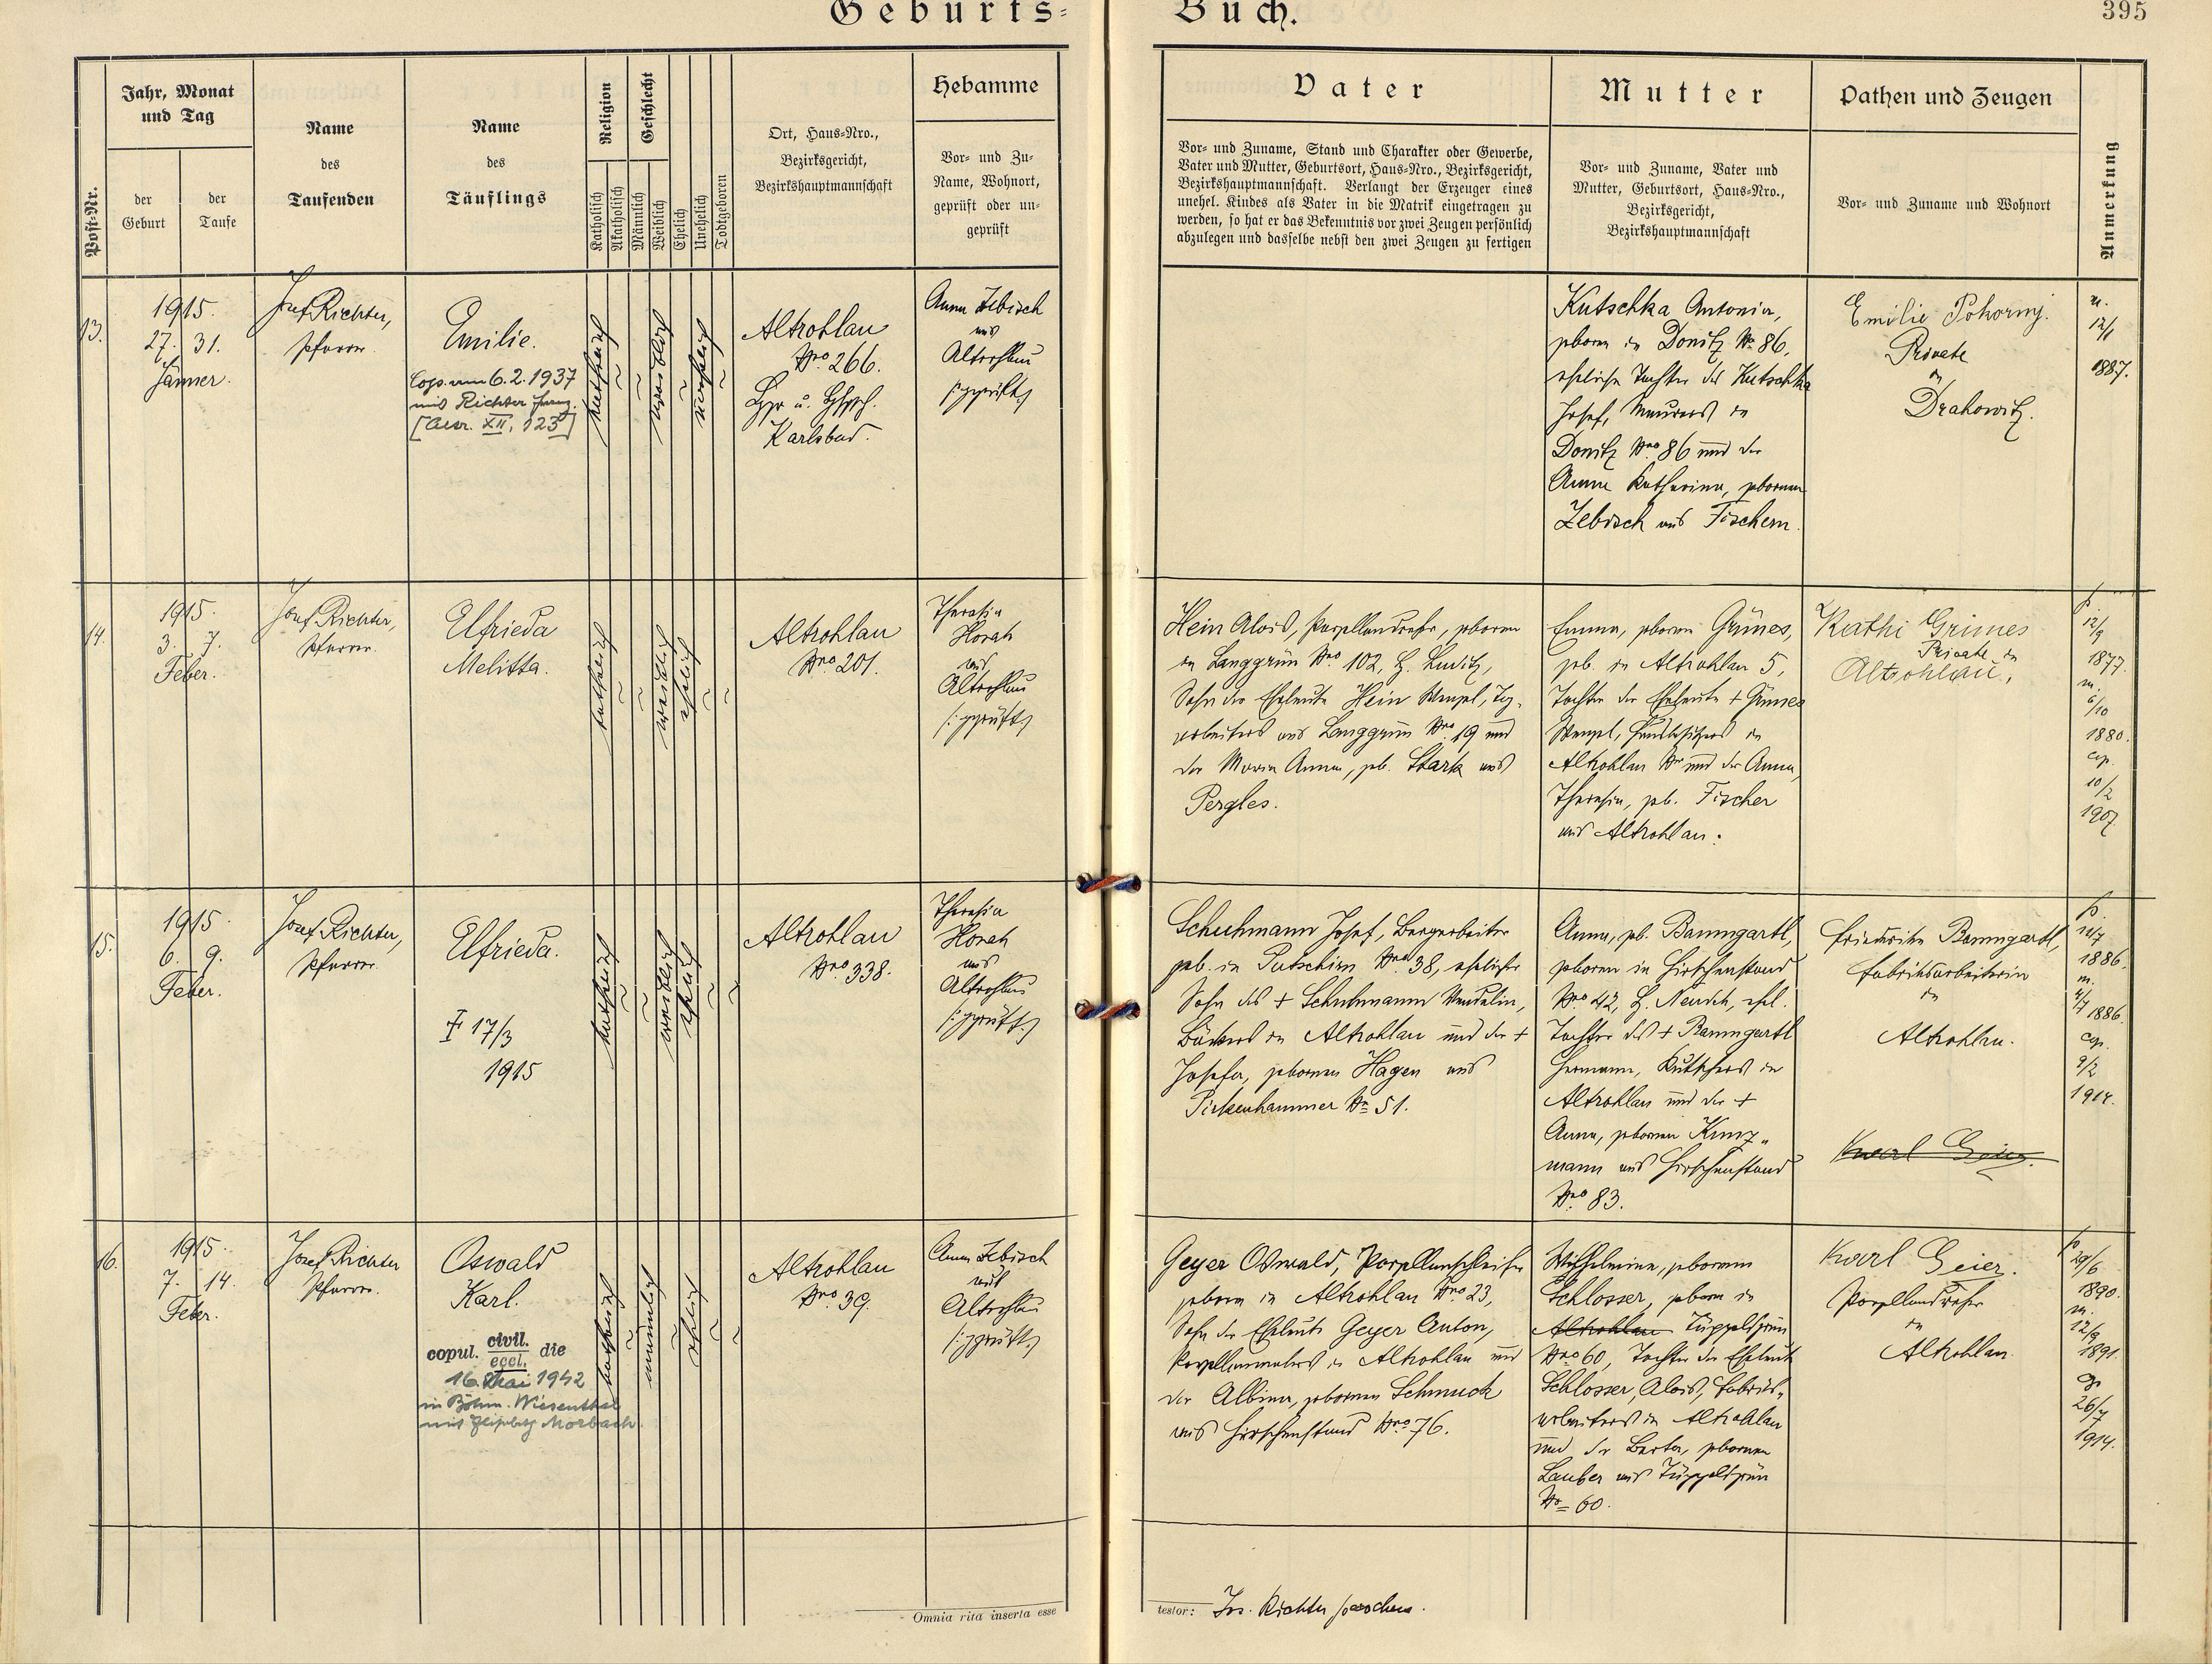 Geburts-Buch.
395
Post-Nr.
Jahr, Monat
und Tag
der
Geburt
der
Taufe
Name
des
Taufenden
Name
des
Täuflings
Religion
Katholisch
Akatholisch
Geschlecht
Männlich
Weiblich
Ehelich
Unehelich
Todtgeboren
Ort, Haus-Nro.,
Bezirksgericht,
Bezirkshauptmannschaft
Hebamme
Vor- und Zu-
Name, Wohnort,
geprüft oder un-
geprüft
Vater
Vor- und Zuname, Stand und Charakter oder Gewerbe,
Vater und Mutter, Geburtsort, Haus-Nro., Bezirksgericht,
Bezirkshauptmannschaft. Verlangt der Erzeuger eines
unehel. Kindes als Vater in die Matrik eingetragen zu
werden, so hat er das Bekenntnis vor zwei Zeugen persönlich
abzulegen und dasselbe nebst den zwei Zeugen zu fertigen
Mutter
Vor- und Zuname, Vater und
Mutter, Geburtsort, Haus-Nro.,
Bezirksgericht,
Bezirkshauptmannschaft
Pathen und Zeugen
Vor- und Zuname und Wohnort
Anmerkung
13.
1915.
27. 31.
Jänner.
Josef Richter,
Pfarrer.
Emilie.
Cop. am 6.2.1937
mit Richter Franz.
XII, 123]
katholisch
weiblich
unehelich
Altrohlau
Nro 266.
Karlsbad.
Anna Zebisch
aus
Altrohlau
(:geprüft:)
Kutschka Antonia,
geboren in Donitz No 86,
eheliche Tochter des Kutschka
Josef, Maurers in
Donitz Nro 86 und der
Anna Katharina, geborenen
Zebisch aus Fischern.
Emilie Pohorny.
Private
in
Drahowitz.
m.
12/1
1887.
14.
1915.
3. 7.
Feber.
Josef Richter,
Pfarrer.
Elfrieda
Melitta.
katholisch
weiblich
ehelich
Altrohlau
Nro 201.
Theresia
Horah
aus
Altrohlau
(:geprüft:)
Hein Alois, Porzellandreher, geboren
in Langgrün Nro 102, B. Luditz,
Sohn der Eheleute Hein Wenzel, Tag-
arbeiters aus Langgrün Nro 19 und
der Maria Anna, geb. Stark aus
Pergles.
Emma, geboren Grünes,
geb. in Altrohlau 5,
Tochter der Eheleute + Grünes
Wenzel, Hausbesitzers in
Altrohlau Nr und der Anna
Theresia, geb. Fischer
aus Altrohlau.
Kathi Grimes
Private in
Altrohlau.
p.
12/9
1877.
m.
6/10
1880.
cop.
10/2
1907
15.
1915.
6. 9.
Feber.
Josef Richter,
Pfarrer.
Elfrieda.
17/3
1915
katholisch
weiblich
ehelich
Altrohlau
Nro 338.
Theresia
Horah
aus
Altrohlau
(:geprüft:)
Schuhmann Josef, Bergarbeiter
geb. in Putschirn Nro 38, ehelicher
Sohn des + Schuhmann Wendelin,
Bäckers in Altrohlau und der +
Josefa, geborenen Hagen aus
Pirkenhammer No 51.
Anna, geb. Baumgartl,
geboren in Hirschenstand
Nro 42, B. Neudek, ehel.
Tochter des + Baumgartl
Hermann, Kutschers in
Altrohlau und der +
Anna, geborenen Kunz-
mann aus Hirschenstand
Nro 83.
Friederike Baumgartl,
Fabriksarbeiterin
in
Altrohlau.
Karl Geier.
p.
1886.
m.
1886.
cop.
9/2
1914.
16.
1915.
7. 14.
Feber.
Josef Richter
Pfarrer.
Oswald
Karl.
copul. civil. eccl. die
16. Mai 1942
in Böhm. Wiesenthal
mit Morbach.
katholisch
männlich
ehelich
Altrohlau
Nro 39.
Anna Zebisch
aus
Altrohlau
(:geprüft:)
Geyer Oswald, Porzellanschleifer
geboren in Altrohlau Nro 23,
Sohn der Eheleute Geyer Anton,
Porzellanmalers in Altrohlau und
der Albina, geborenen Schmuck
aus Hirschenstand Nro 76.
Wilhelmine, geborenen
Schlosser, geboren in
Altrohlau Tüppelsgrün
Nro 60, Tochter der Eheleute
Schlosser, Alois, Fabriks-
arbeiters in Altrohlau
und der Berta, geborenen
Lauber aus Tüppelsgrün
No 60.
Karl Geier.
Porzellandreher
in
Altrohlau.
p.
29/6
1890.
m.
12/9
1891.
cop.
26/7
1914.
Omnia rita inserta esse
testor: Jos. Richter parochus.